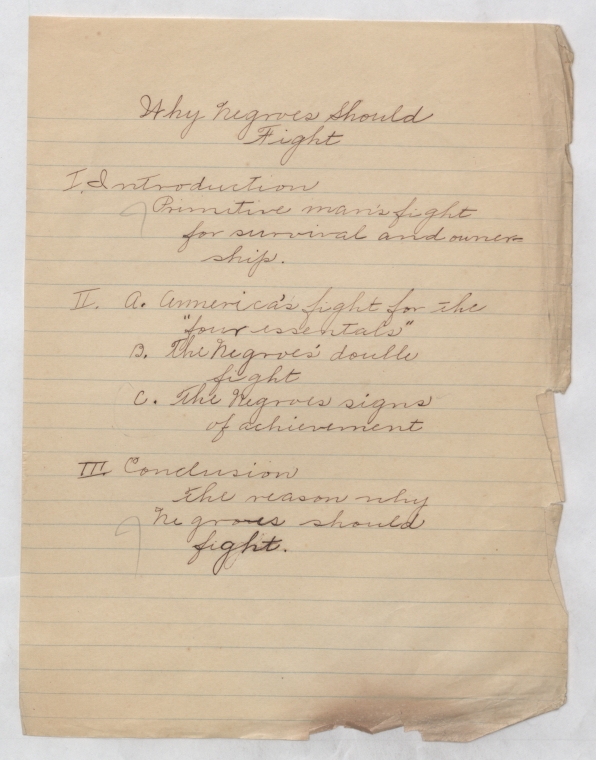 Why Negroes Should
Fight
I. Introduction
Primitive man's fight
for survival and owner-
ship.
II. A. America's fight for the
"four essentals"
B. The Negroes' double
fight
C. The Negroes signs
of achievement
III Conclusion
The reason why
Negroes should
fight.